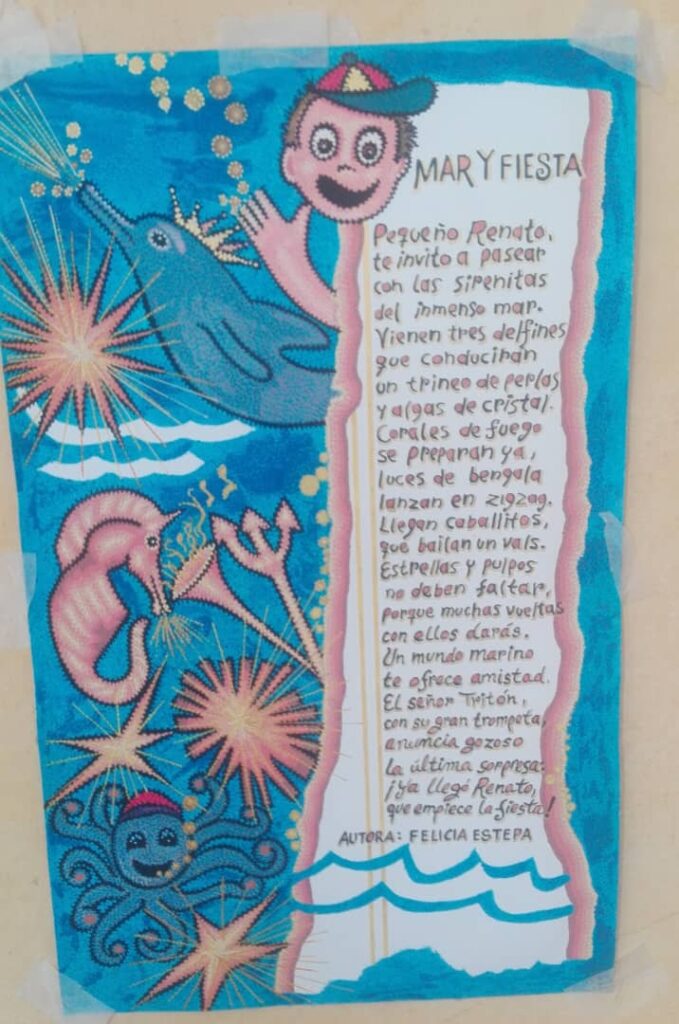 MAR Y FIESTA
Pequeño Renato,
te invito a pasear
con las sirenitas
del inmenso mar.
Vienen tres delfines
que conducirán
un trineo de perlas
y algas de cristal.
Corales de fuego
se preparan ya,
luces de bengala
lanzan en zigzag.
Llegan caballitos,
que bailan un vals.
Estrellas y pulpos
no deben faltar,
porque muchas vueltas
con ellos darás.
Un mundo marino
te ofrece amistad.
El señor Tritón,
con su gran trompeta,
anuncia gozoso
la última sorpresa:
¡Ya llegó Renato,
que empiece la fiesta!
AUTORA: FELICIA ESTEPA